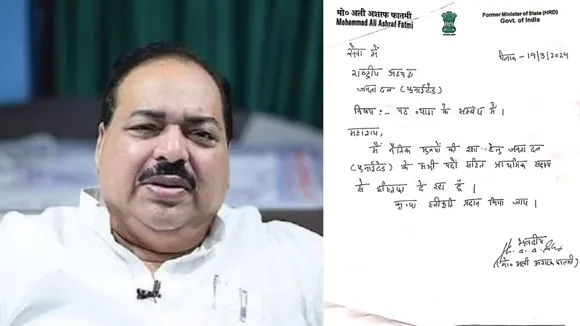 मो० अली अशरफ फातमी
Mohammad Ali Ashraf Fatmi
Former Minister of State (HRD)
Govt. of India
दिनांक - 19/3/2024
सेवा में
राष्ट्रीय अध्यक्ष
जनता दल (यूनाईटेड)
विषय :- पद त्याग के सम्बंध में।
महाशय,
मैं नैतिक मूल्यों की रक्षा हेतु जनता दल
(यूनाईटेड) के सभी पदों सहित प्राथमिक सदस्यता
से इस्तीफा दे रहा हूँ।
कृपया स्वीकृति प्रदान किया जाय।
भवदीय
(मो० अली अशरफ फातमी)